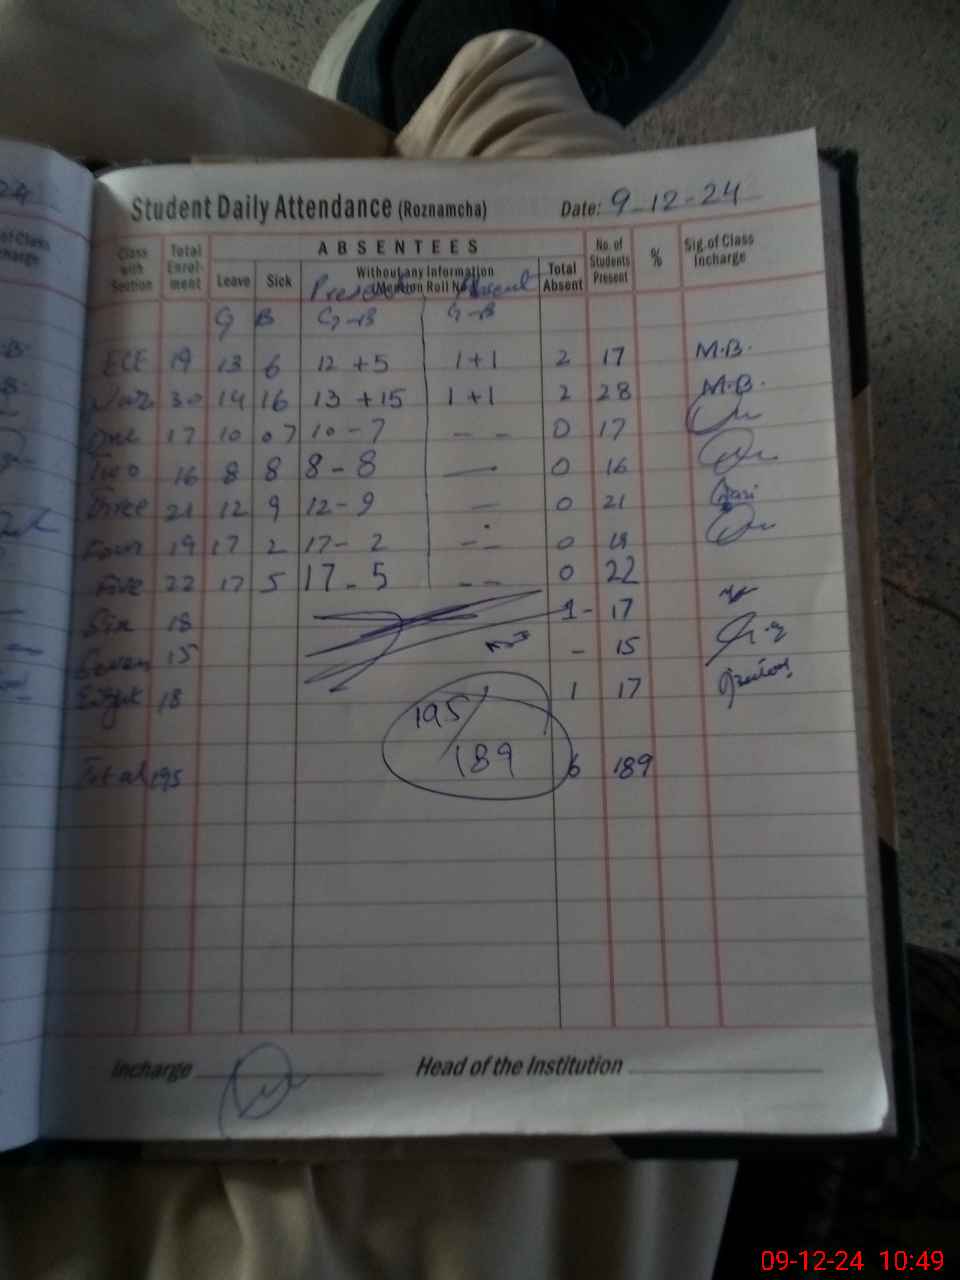 24
Student Daily Attendance (Roznamcha) Date: 9-12-24
of Class
harge
Class with Section Total Enrol-ment ABSENTEES No. of Students Present % Sig. of Class Incharge
Leave Sick Without any Information (Mention Roll No.) Total Absent
Present Absent
G B G-B G-B
ECE 19 13 6 12 +5 1+1 2 17 M.B.
Nur 30 14 16 13 +15 1+1 2 28 M.B.
One 17 10 07 10-7 - - 0 17
Two 16 8 8 8-8 — 0 16
Three 21 12 9 12-9 — 0 21
Four 19 17 2 17-2 - - 0 19
Five 22 17 5 17-5 - - 0 22
Six 18 1- 17
Seven 15 - 15
Eight 18 1 17
195/189
Total 195 6 189
Incharge Head of the Institution
09-12-24 10:49